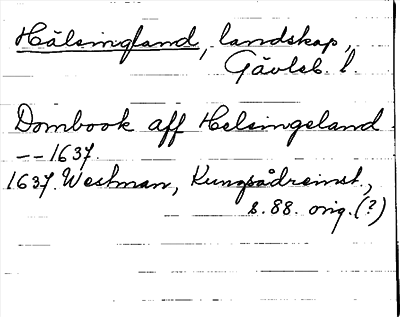 Hälsingland, landskap,
Gävleb. l.
Dombook aff Helsingeland
-- 1637.
1637. Westman, Kungsådreinst.,
s. 88. orig. (?)